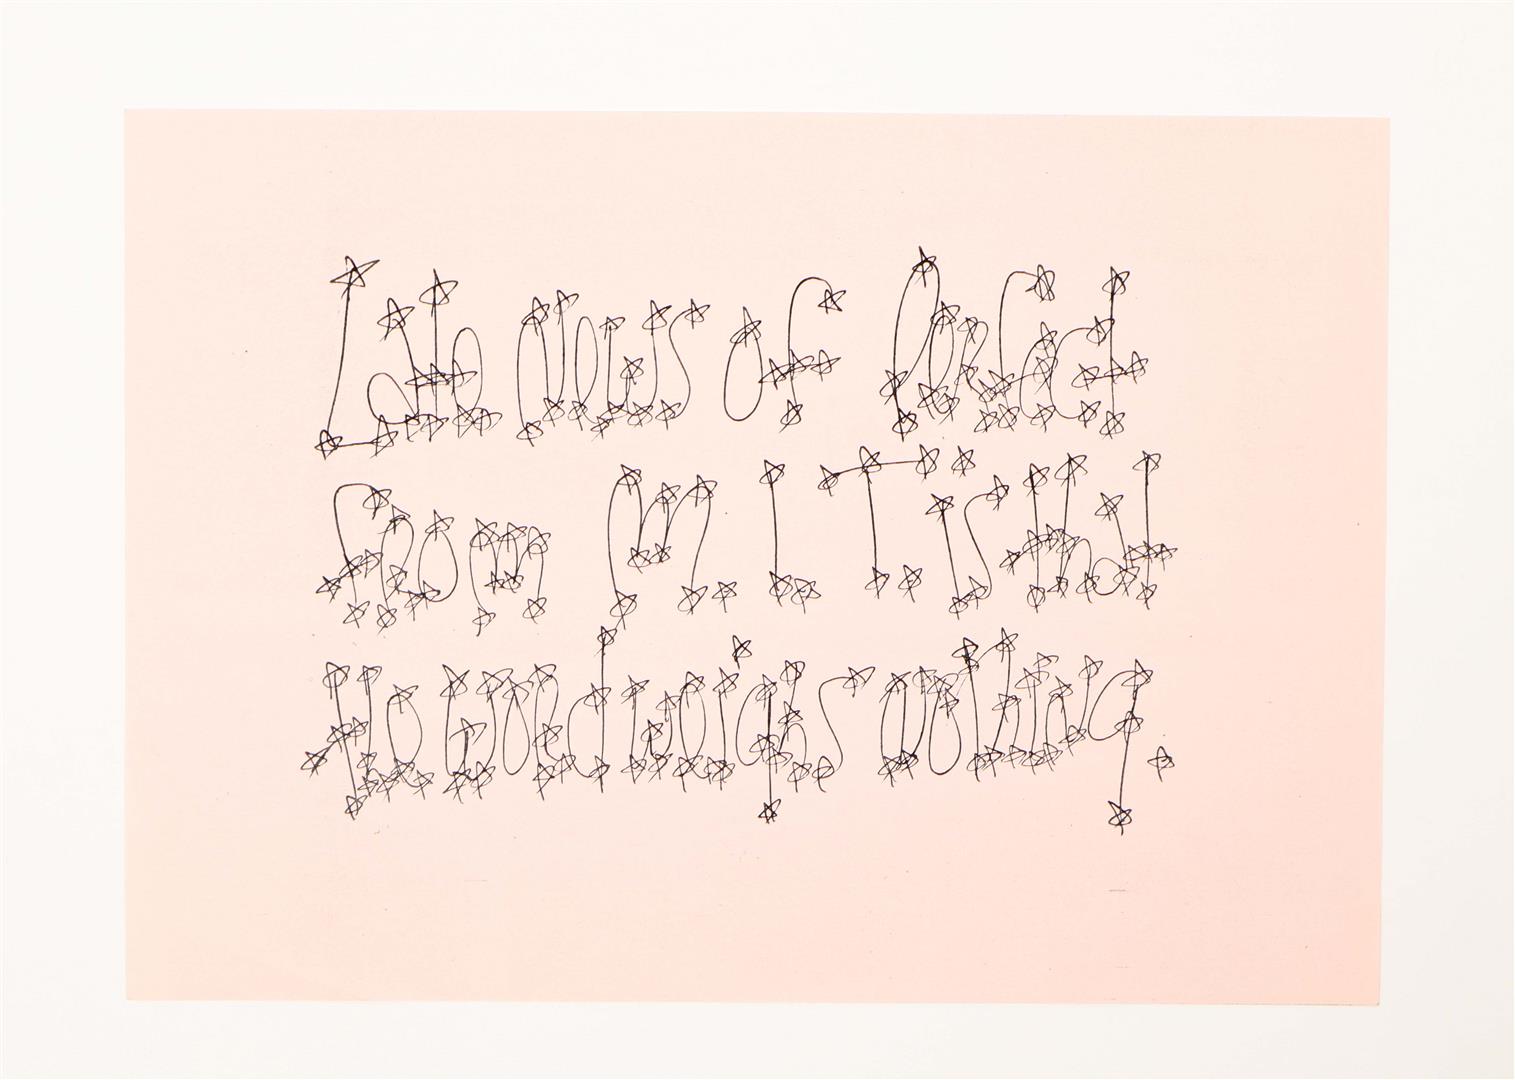 Late news of Perfect
from M.I.T. is that
the word weighs nothing.